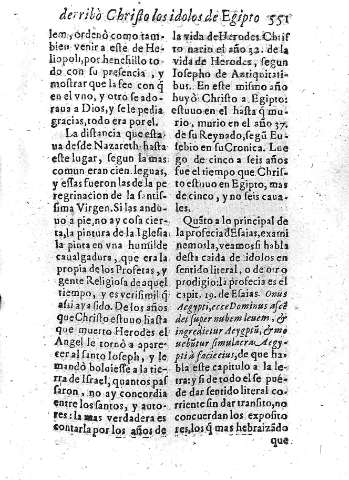 derribò Christo los idolos de Egipto 551
lem, ordenò como tam-
bien venir a este de He-
liopoli, por henchillo to
do con su presencia, y
mostrar que la fee con q̃
en el vno, y otro se ado-
raua a Dios, y se le pedia
gracias, todo era por el.
La distancia que esta-
ua desde Nazareth hasta
este lugar, segun la mas
comun eran cien leguas,
y essas fueron las de la pe
regrinacion de la santis-
sima Virgen. Si las andu-
uo a pie, no ay cosa cier-
ta, la pintura de la Iglesia
la pinta en vna humilde
caualgadura, que era la
propia de los Profetas, y
gente Religiosa de aquel
tiempo, y es verisimil q̃
assi aya sido. De los años
que Christo estuuo hasta
que muerto Herodes el
Angel le tornò a apare-
cer al santo Ioseph, y le
mandò boluiesse a la tie-
rra de Israel, quantos pas
saron, no ay concordia
entre los santos, y auto-
res: la mas verdadera es
contarla por los años de
la vida de Herodes. Chris
to nacio el año 32. de la
vida de Herodes, segun
Iosepho de Antiquitati-
bus. En este mismo año
huyò Christo a Egipto:
estuuo en el hasta q̃ mu-
rio, murio en el año 37.
de su Reynado, segũ Eu-
sebio en su Cronica. Lue
go de cinco a seis años
fue el tiempo que Chris-
to estuuo en Egipto, mas
de cinco, y no seis caua-
les.
Quãto a lo principal de
la profecia d̃ Esaias, exami
nemosla, veamos si habla
desta caida de idolos en
sentido literal, o de otro
prodigio: la profecia es el
capit. 19. de Esaias. Onus
Aegypti, ecce Dominus ascẽ
det super nubem leuem, &
ingredietur Aegyptũ, & mo
uebũtur simulacra Aegy-
pti à facie eius, de que ha-
bla este capitulo a la le-
tra: y si de todo el se pue-
de dar sentido literal co-
rriente sin dar transito, no
concuerdan los exposito
res, los q̃ mas hebraizãdo
que